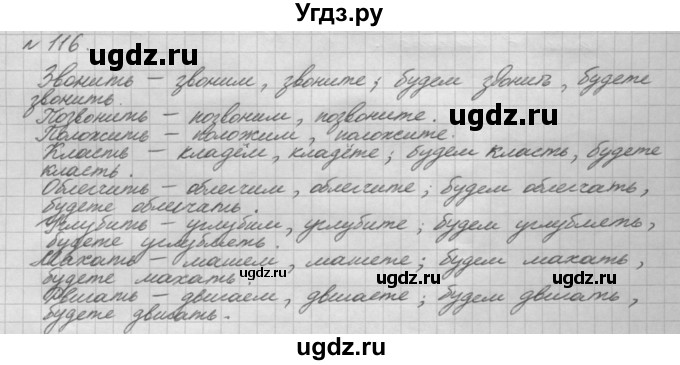 Угдз.ру
№ 116.
Звонить – звоним, звоните; будем звонить, будете
звонить.
Позвонить – позвоним, позвоните.
Положить – положим, положите.
Класть – кладём, кладёте; будем класть, будете
класть.
Облегчить – облегчим, облегчите; будем облегчать,
будете облегчать.
Углубить – углубим, углубите; будем углублять,
будете углублять.
Махать – машем, машете; будем махать,
будете махать.
Двигать – двигаем, двигаете; будем двигать,
будете двигать.
ugdz.ru
ugdz.ru
ugdz.ru
ugdz.ru
ugdz.ru
ugdz.ru
ugdz.ru
ugdz.ru
ugdz.ru